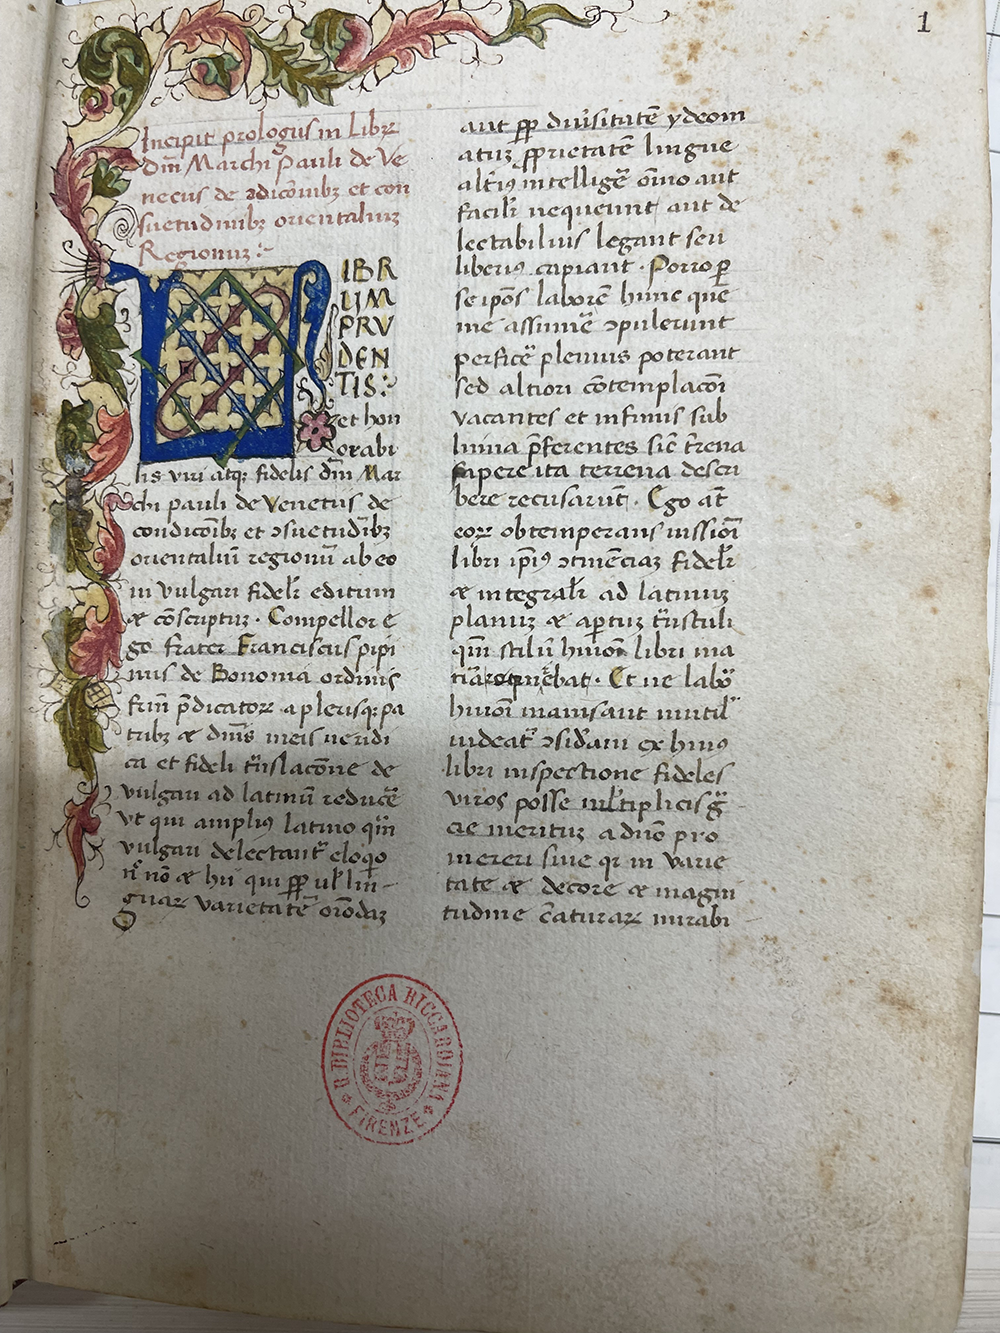 1
Incipit prologus in Libr
dm̄ Marchi Pauli de Ve
necus de ↄdicōnibꝫ et con
suetudinibꝫ orientaliuꝫ
Regionuꝫ:
L IBR
UM
PRV
DEN
TIS:
et hon
orabi
lis viri atqꝫ fidelis dm̄ Mar
chi pauli de Venetus de
condicōibꝫ et ↄsuetudībꝫ
orientaliū regionū ab eo
in vulgari fidelr̄ editum
⁊ cōscriptuꝫ. Compellor e
go frater Franciscus pipi
nus de Bononia ordinis
frm̄ p̄dicatorꝝ a plerisqꝫ pa
tribꝫ ⁊ dn̄is meis veridi
ca et fideli tn̄slacōne de
vulgari ad latinū reducē
vt qui amplius latino qm̄
vulgari delectantᷣ eloqō
nō ⁊ hii qui ꝓp ul̄ lin-
guaꝝ varietatē
aut ꝓp diu̾sitatē ydeom
atuꝫ ꝓprietatē lingue
alt̄iꝰ intelligē̄ oīno aut
facilr̄ nequeunt aut de
lectabilius legant seu
liberiꝰ capiant. Porro ꝑ
se ip̄os laborē hunc que
me assumē̄ ↄpulerunt
perficē̄ plenius poterant
sed altiori cōtemplacōi
vacantes et infimis sub
limia p̄ferentes sic̄ t̄rena
sapere ita terrena descri
bere recusarūt. Ego at̄
eoꝝ obtemperans iussiōi
libri ip̄iꝰ ↄtinēciaꝫ fidelr̄
⁊ integralr̄ ad latinuꝫ
planuꝫ ⁊ ap̄tuꝫ tn̄stuli
qm̄ stilū huiꝰ libri ma
tīa reqrēbat. Et ne labō
huiōi inanis aut inutilˀ
uideatᷣ ↄsid̄aui ex huiꝰ
libri inspectione fideles
viros posse mul̄tiplicis gr̄-
cie merituꝫ a dn̄o pro
mereri siue qꝛ in varie
tate ⁊ decore ⁊ magni
tudine c̄aturaꝝ mirabi
R. BIBLIOTECA RICCARDIANA
FIRENZE